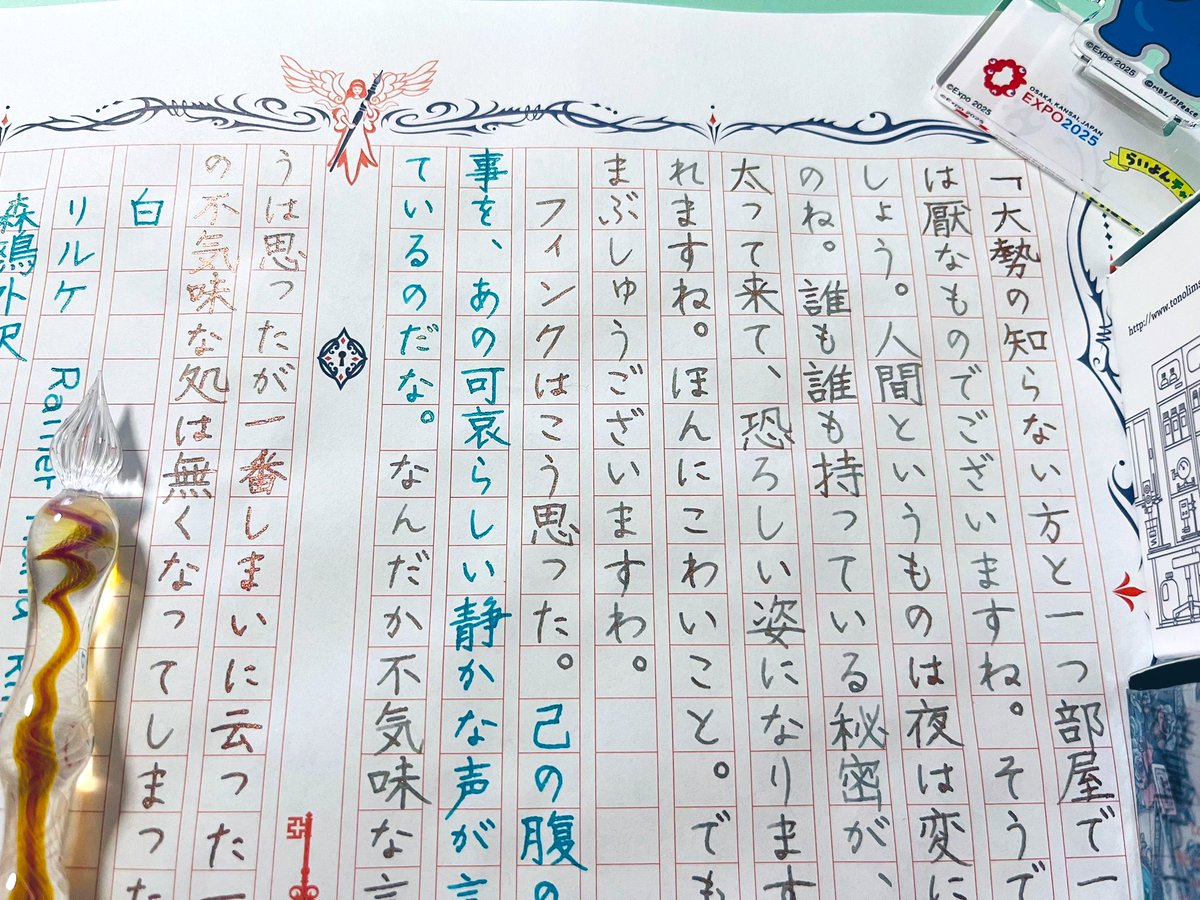 「大勢の知らない方と一つ部屋で一
は厭なものでございますね。そうで
しょう。人間というものは夜は変に
のね。誰も誰も持っている秘密が、
太って来て、恐ろしい姿になります
れますね。ほんにこわいこと。でも
まぶしゅうございますわ。
フィンクはこう思った。己の腹の
事を、あの可哀らしい静かな声が言
ているのだな。なんだか不気味な言
うは思ったが一番しまいに云った一
の不気味な処は無くなってしまった
白
リルケ Rainer
森鷗外訳
©Expo 2025
OSAKA, KANSAI, JAPAN
EXPO2025
©Expo 2025
©MBS/PJPeace
らいよんチャ
http://www.tonolims